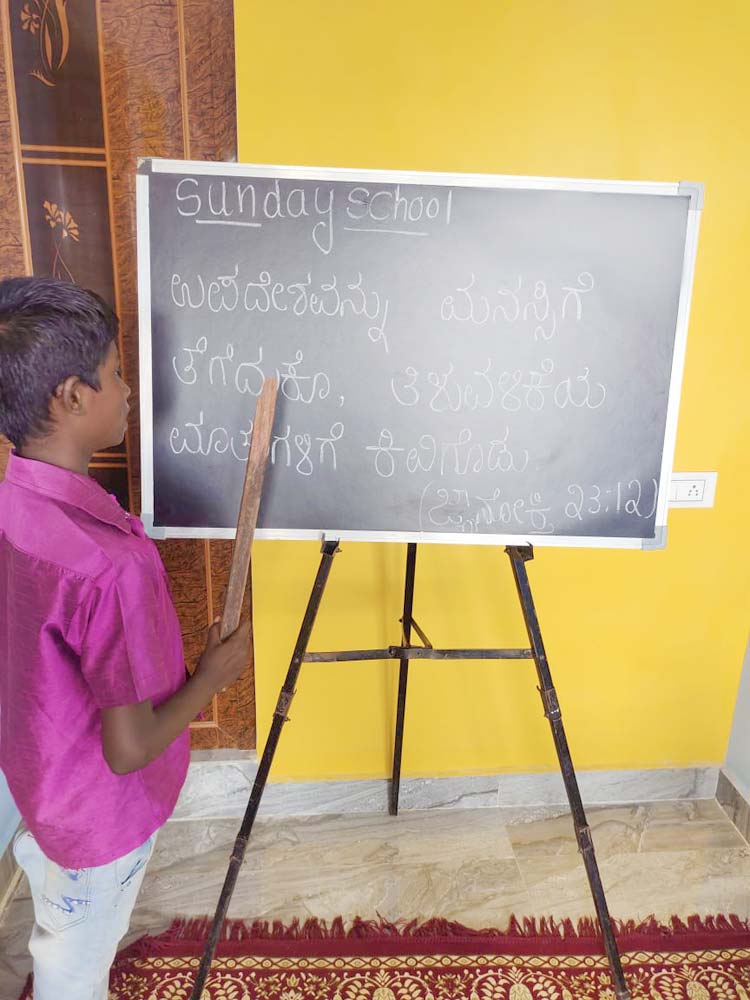 Sunday School
ಉಪದೇಶವನ್ನು ಮನಸ್ಸಿಗೆ
ತೆಗೆದುಕೊ, ತಿಳುವಳಿಕೆಯ
ಮಾತುಗಳಿಗೆ ಕಿವಿಗೊಡು.
(ಜ್ಞಾನೋಕ್ತಿ 23:12)